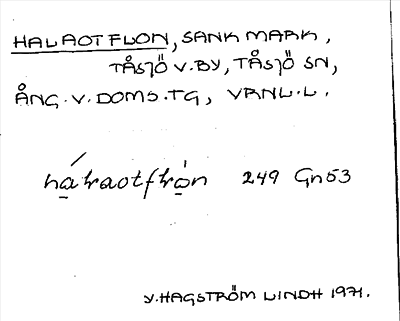 HALAOTFLON, SANK MARK,
TÅSJÖ V.BY, TÅSJÖ SN,
ÅNG.V.DOMS.TG, VANL.L.
249 Gn53
Y.HAGSTRÖM LINDH 1971.